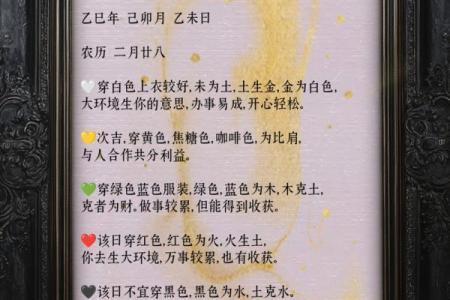 乙巳年 己卯月 乙未日
农历 二月廿八
🤍穿白色上衣较好,未为土,土生金,金为白色,
大环境生你的意思,办事易成,开心轻松。
💛次吉,穿黄色,焦糖色,咖啡色,为比肩,
与人合作共分利益。
💚穿绿色蓝色服装,绿色,蓝色为木,木克土,
克者为财。做事较累,但能得到收获。
❤️该日穿红色,红色为火,火生土,
你去生大环境,万事较累,也有收获。
🖤该日不宜穿黑色,黑色为水,土克水,